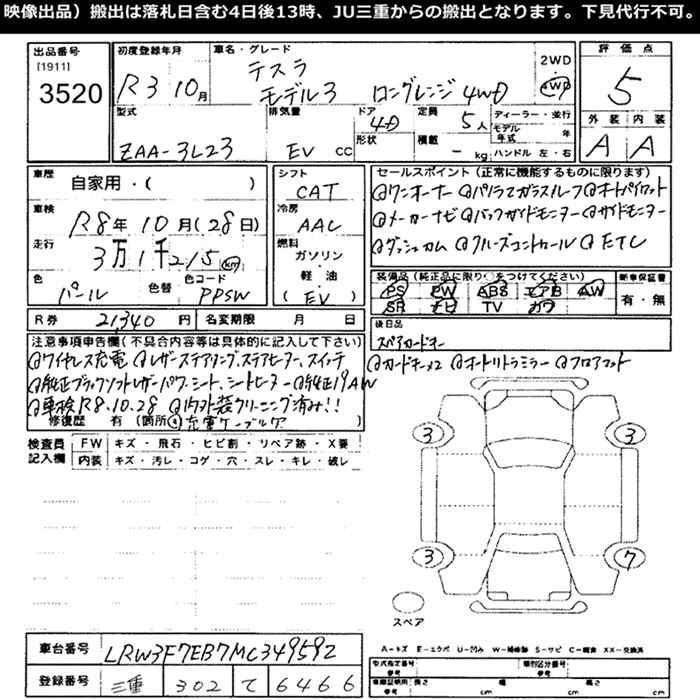 映像出品）搬出は落札日含む4日後13時、JU三重からの搬出となります。下見代行不可。
出品番号 初度登録年月 車名・グレード 2WD 評価点
[1911] テスラ
3520 R3 10月 モデル3 ロングレンジ 4WD 4WD 5
型式 排気量 ドア 定員 ディーラー・並行 外装 内装
4D 5人 モデル年式 年
ZAA-3L23 EV cc 形状 積載 - kg ハンドル 左・右 A A
車歴 シフト セールスポイント（正常に機能するものに限ります）
自家用・( ) CAT @ワンオーナー @パノラマガラスルーフ @オートパイロット
車検 冷房 @メーカーナビ @バックガイドモニター @サイドモニター
R8年 10月(28日) AAC
走行 燃料 @ダッシュカム @クルーズコントロール @ETC
3万1千215km ガソリン・
色 色替 色コード 軽油・ 装備品（純正品に限り○をつけてください） 新車保証書
パール PPSW (EV) PS PW ABS エアB AW 有・無
SR ナビ TV カワ
R券 21,340円 名変期限 月 日 後日品
スペアカードキー
注意事項申告欄（不具合内容等は具体的に記入して下さい） @カードキー×2 @オートリトラミラー @フロアマット
@ワイヤレス充電 @レザーステアリング、ステアヒーター、スイッチ
@純正ブラックソフトレザーパワーシート、シートヒーター @純正19AW
@車検R8.10.28 @内外装クリーニング済み!!
修復歴 有 (箇所 @充電ケーブル
検査員 FW キズ・飛石・ヒビ割・リペア跡・X要
記入欄 内装 キズ・汚レ・コゲ・穴・スレ・キレ・破レ
3 3
3 7
スペア
A-キズ E-エクボ U-凹み W-補修跡 S-サビ C-腐食 XX-交換済
車台番号 LRW3F7EB7MC349592
登録番号 三重 302 て 6466
型式指定番号 類別区分番号
参考 参考
車庫証明用 長さ 幅 高さ
参考 cm cm cm